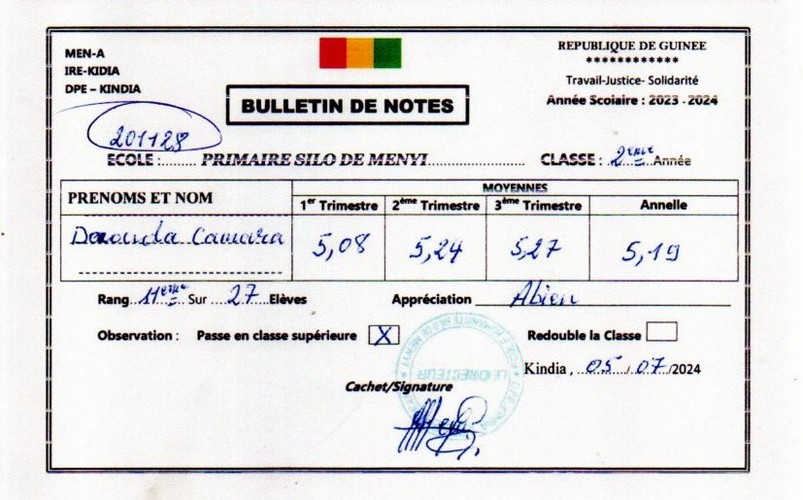 MEN-A
IRE-KIDIA
DPE – KINDIA
REPUBLIQUE DE GUINEE
************
Travail-Justice- Solidarité
Année Scolaire : 2023 - 2024
BULLETIN DE NOTES
201128
ECOLE :....... PRIMAIRE SILO DE MENYI........................ CLASSE : 2ème Année
PRENOMS ET NOM
MOYENNES
1er Trimestre 2ème Trimestre 3ème Trimestre Annelle
Camara 5,08 5,24 5,27 5,19
Rang 11ème Sur 27 Elèves Appréciation A bien
Observation : Passe en classe supérieure X Redouble la Classe
Kindia , 05 / 07 /2024
LE DIRECTEUR
Cachet/Signature